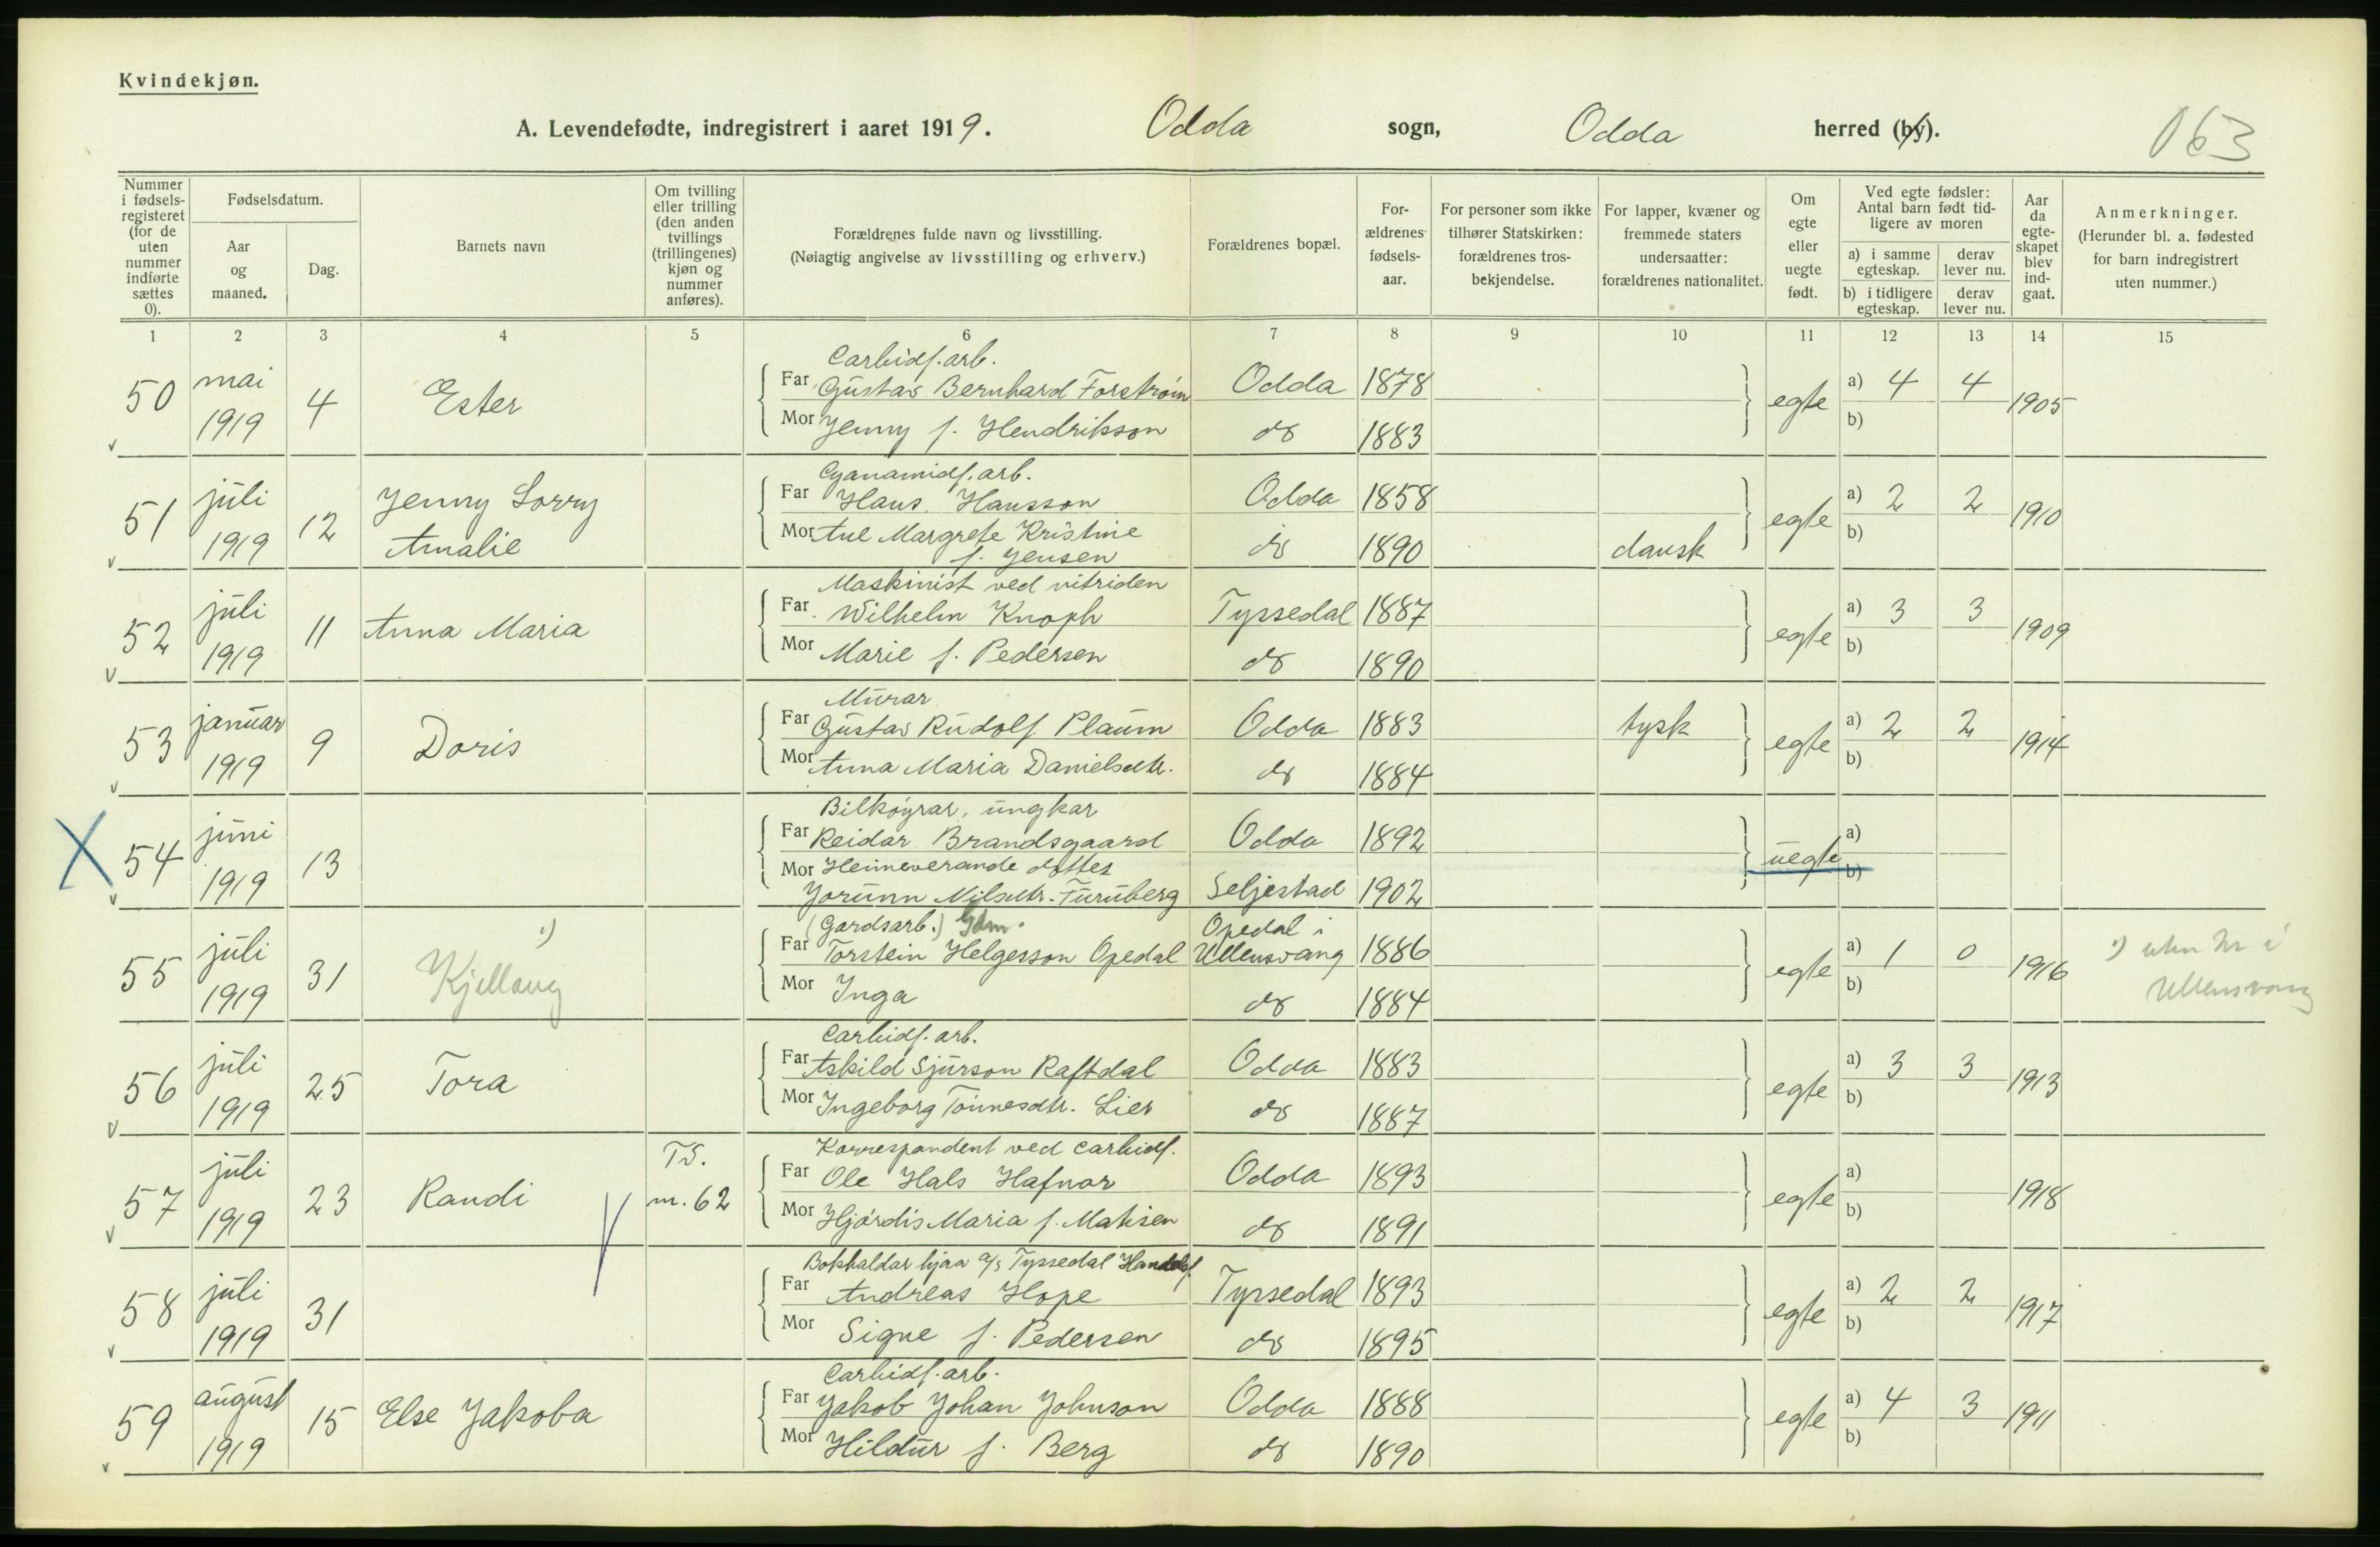 Kvindekjøn.
A. Levendefødte, indregistrert i aaret 1919. Odda sogn, Odda herred (by). 163
Nummer i fødsels-registeret (for de uten nummer indførte sættes 0).
Fødselsdatum.
Aar og maaned.
Dag.
Barnets navn
Om tvilling eller trilling (den anden tvillings (trillingenes) kjøn og nummer anføres).
Forældrenes fulde navn og livsstilling.
(Nøiagtig angivelse av livsstilling og erhverv.)
Forældrenes bopæl.
For-ældrenes fødsels-aar.
For personer som ikke tilhører Statskirken: forældrenes tros-bekjendelse.
For lapper, kvæner og fremmede staters undersaatter: forældrenes nationalitet.
Om egte eller uegte født.
Ved egte fødsler: Antal barn født tid-ligere av moren
a) i samme egteskap. derav lever nu.
b) i tidligere egteskap. derav lever nu.
Aar da egte-skapet blev ind-gaat.
Anmerkninger.
(Herunder bl. a. fødested for barn indregistrert uten nummer.)
1 2 3 4 5 6 7 8 9 10 11 12 13 14 15
Carbidf. arb.
50 mai 1919 4 Ester Far Gustav Bernhard Forstrøm Odda 1878 egte a) 4 4 1905
Mor Jenny f. Hendriksson do 1883 b)
Cyanamidf. arb.
51 juli 1919 12 Jenny Lorry Amalie Far Hans Hansson Odda 1858 egte a) 2 2 1910
Mor Ane Margrete Kristine f. Jensen do 1890 dansk b)
Maskinist ved nitriden
52 juli 1919 11 Anna Maria Far Wilhelm Knoph Tyssedal 1887 egte a) 3 3 1909
Mor Marie f. Pedersen do 1890 b)
Murar
53 januar 1919 9 Doris Far Gustav Rudolf Plaum Odda 1883 tysk egte a) 2 2 1914
Mor Anna Maria Danielsdtr. do 1884 b)
Bilkøyrar, ungkar
X 54 juni 1919 13 Far Reidar Brandsgaard Odda 1892 uegte a)
Mor Heimeverande dotter
Jorunn Nilsdtr. Furuberg Seljestad 1902 b)
(Gardsarb.) Gdm.
55 juli 1919 31 Kjellaug 1) Far Torstein Helgesson Opedal Opedal i Ullensvang 1886 egte a) 1 0 1916 1) uten Nr i Ullensvang
Mor Inga do 1884 b)
Carbidf. arb.
56 juli 1919 25 Tora Far Askild Sjurson Raftdal Odda 1883 egte a) 3 3 1913
Mor Ingeborg Tönnesdtr. Lier do 1887 b)
Korrespondent ved Carbidf.
57 juli 1919 23 Randi T.S. m. 62 Far Ole Hals Hafnor Odda 1893 egte a) 1918
Mor Hjördis Maria f. Matisen do 1891 b)
Bokhaldar hjaa a/s Tyssedal Handelsf.
58 juli 1919 31 Far Andreas Hope Tyssedal 1893 egte a) 2 2 1917
Mor Signe f. Pedersen do 1895 b)
Carbidf. arb.
59 august 1919 15 Else Jakoba Far Jakob Johan Johnson Odda 1888 egte a) 4 3 1911
Mor Hildur f. Berg do 1890 b)